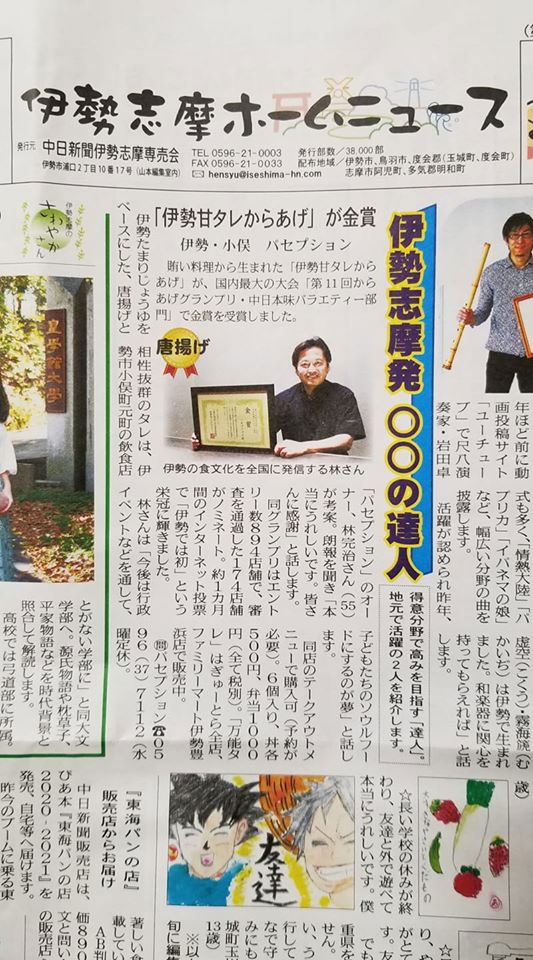 伊勢志摩ホームニュース
発行元 中日新聞伊勢志摩専売会
伊勢市浦口2丁目10番17号(山本編集室内)
TEL 0596-21-0003
FAX 0596-21-0033
hensyu@iseshima-hn.com
発行部数/38,000部
配布地域/伊勢市、鳥羽市、度会郡(玉城町、度会町)
志摩市阿児町、多気郡明和町
伊勢志摩発 〇〇の達人
得意分野で高みを目指す「達人」。
地元で活躍の2人を紹介します。
「伊勢甘タレからあげ」が金賞
伊勢・小俣 パセプション
賄い料理から生まれた「伊勢甘タレから
あげ」が、国内最大の大会「第11回から
あげグランプリ・中日本味バラエティー部
門」で金賞を受賞しました。
唐揚げ
金賞
伊勢の食文化を全国に発信する林さん
伊勢たまりじょうゆを
ベースにした、唐揚げと
相性抜群のタレは、伊
勢市小俣町元町の飲食店
「パセプション」のオー
ナー、林完治さん(55)
が考案。朗報を聞き「本
当にうれしいです。皆さ
んに感謝」と話します。
同グランプリはエント
リー数894店舗で、審
査を通過した174店舗
がノミネート。約1カ月
間のインターネット投票
で「伊勢では初」という
栄冠に輝きました。
林さんは「今後は行政
イベントなどを通して、
子どもたちのソウルフー
ドにするのが夢」と話し
ます。
同店のテークアウトメ
ニューで購入可(予約が
必要)。6個入り、丼各
500円、弁当1000
円(全て税別)。「万能タ
レ」はぎゅーとら全店、
ファミリーマート伊勢豊
浜店で販売中。
問パセプション☎05
96(37)7112(水
曜定休)。
年ほど前に動
画投稿サイト
「ユーチュー
ブ」で尺八演
奏家・岩田卓
式も多く、「情熱大陸」「パ
プリカ」「イパネマの娘」
など、幅広い分野の曲を
披露します。
活躍が認められ昨年、
虚空(こくう)・霧海箎(む
かいぢ)は伊勢で生まれ
ました。和楽器に関心を
持ってもらえれば」と話
します。
伊勢志摩の
さわやかさん
皇學館大学
とがない学部に」と同大文
学部へ。源氏物語や枕草子、
平家物語などを時代背景と
照合して解読します。
高校では弓道部に所属。
『東海パンの店』
販売店からお届け
中日新聞販売店は、
ぴあ本『東海パンの店
2020-2021』を
発売、自宅等へ届けます。
昨今のブームに乗る東
友達
☆長い学校の休みが終
わり、友達と外で遊べて
本当にうれしいです。僕